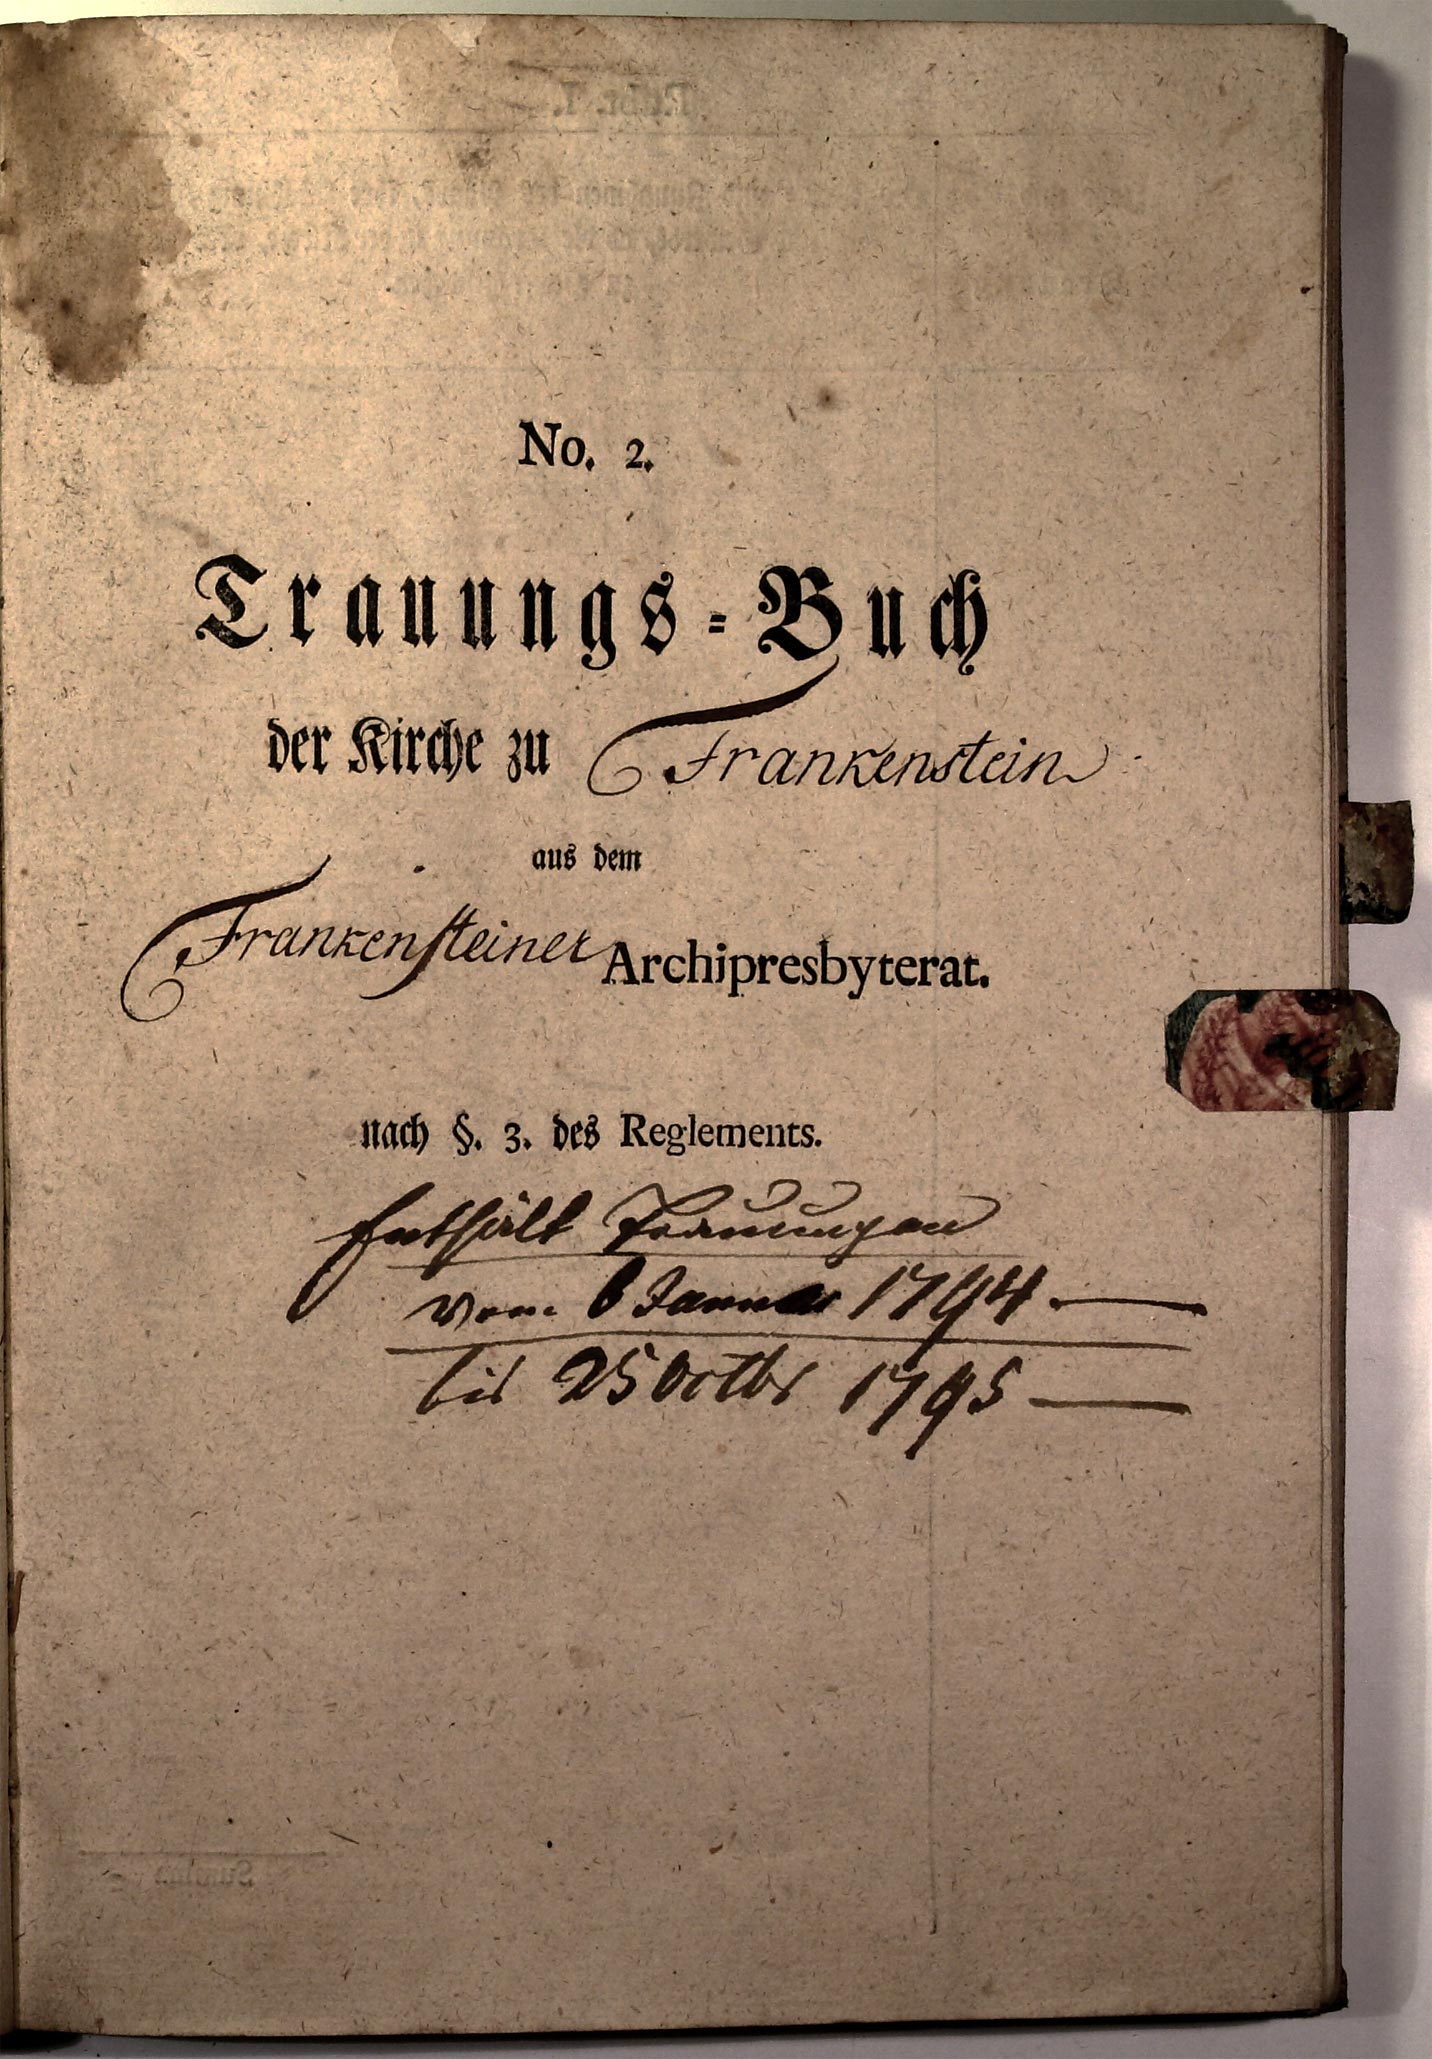 No. 2.
Trauungs=Buch
der Kirche zu Frankenstein
aus dem
Frankensteiner Archipresbyterat.
nach §. 3. des Reglements.
Enthält Trauungen
vom 6 Januar 1794
bis 25 Octbr 1795